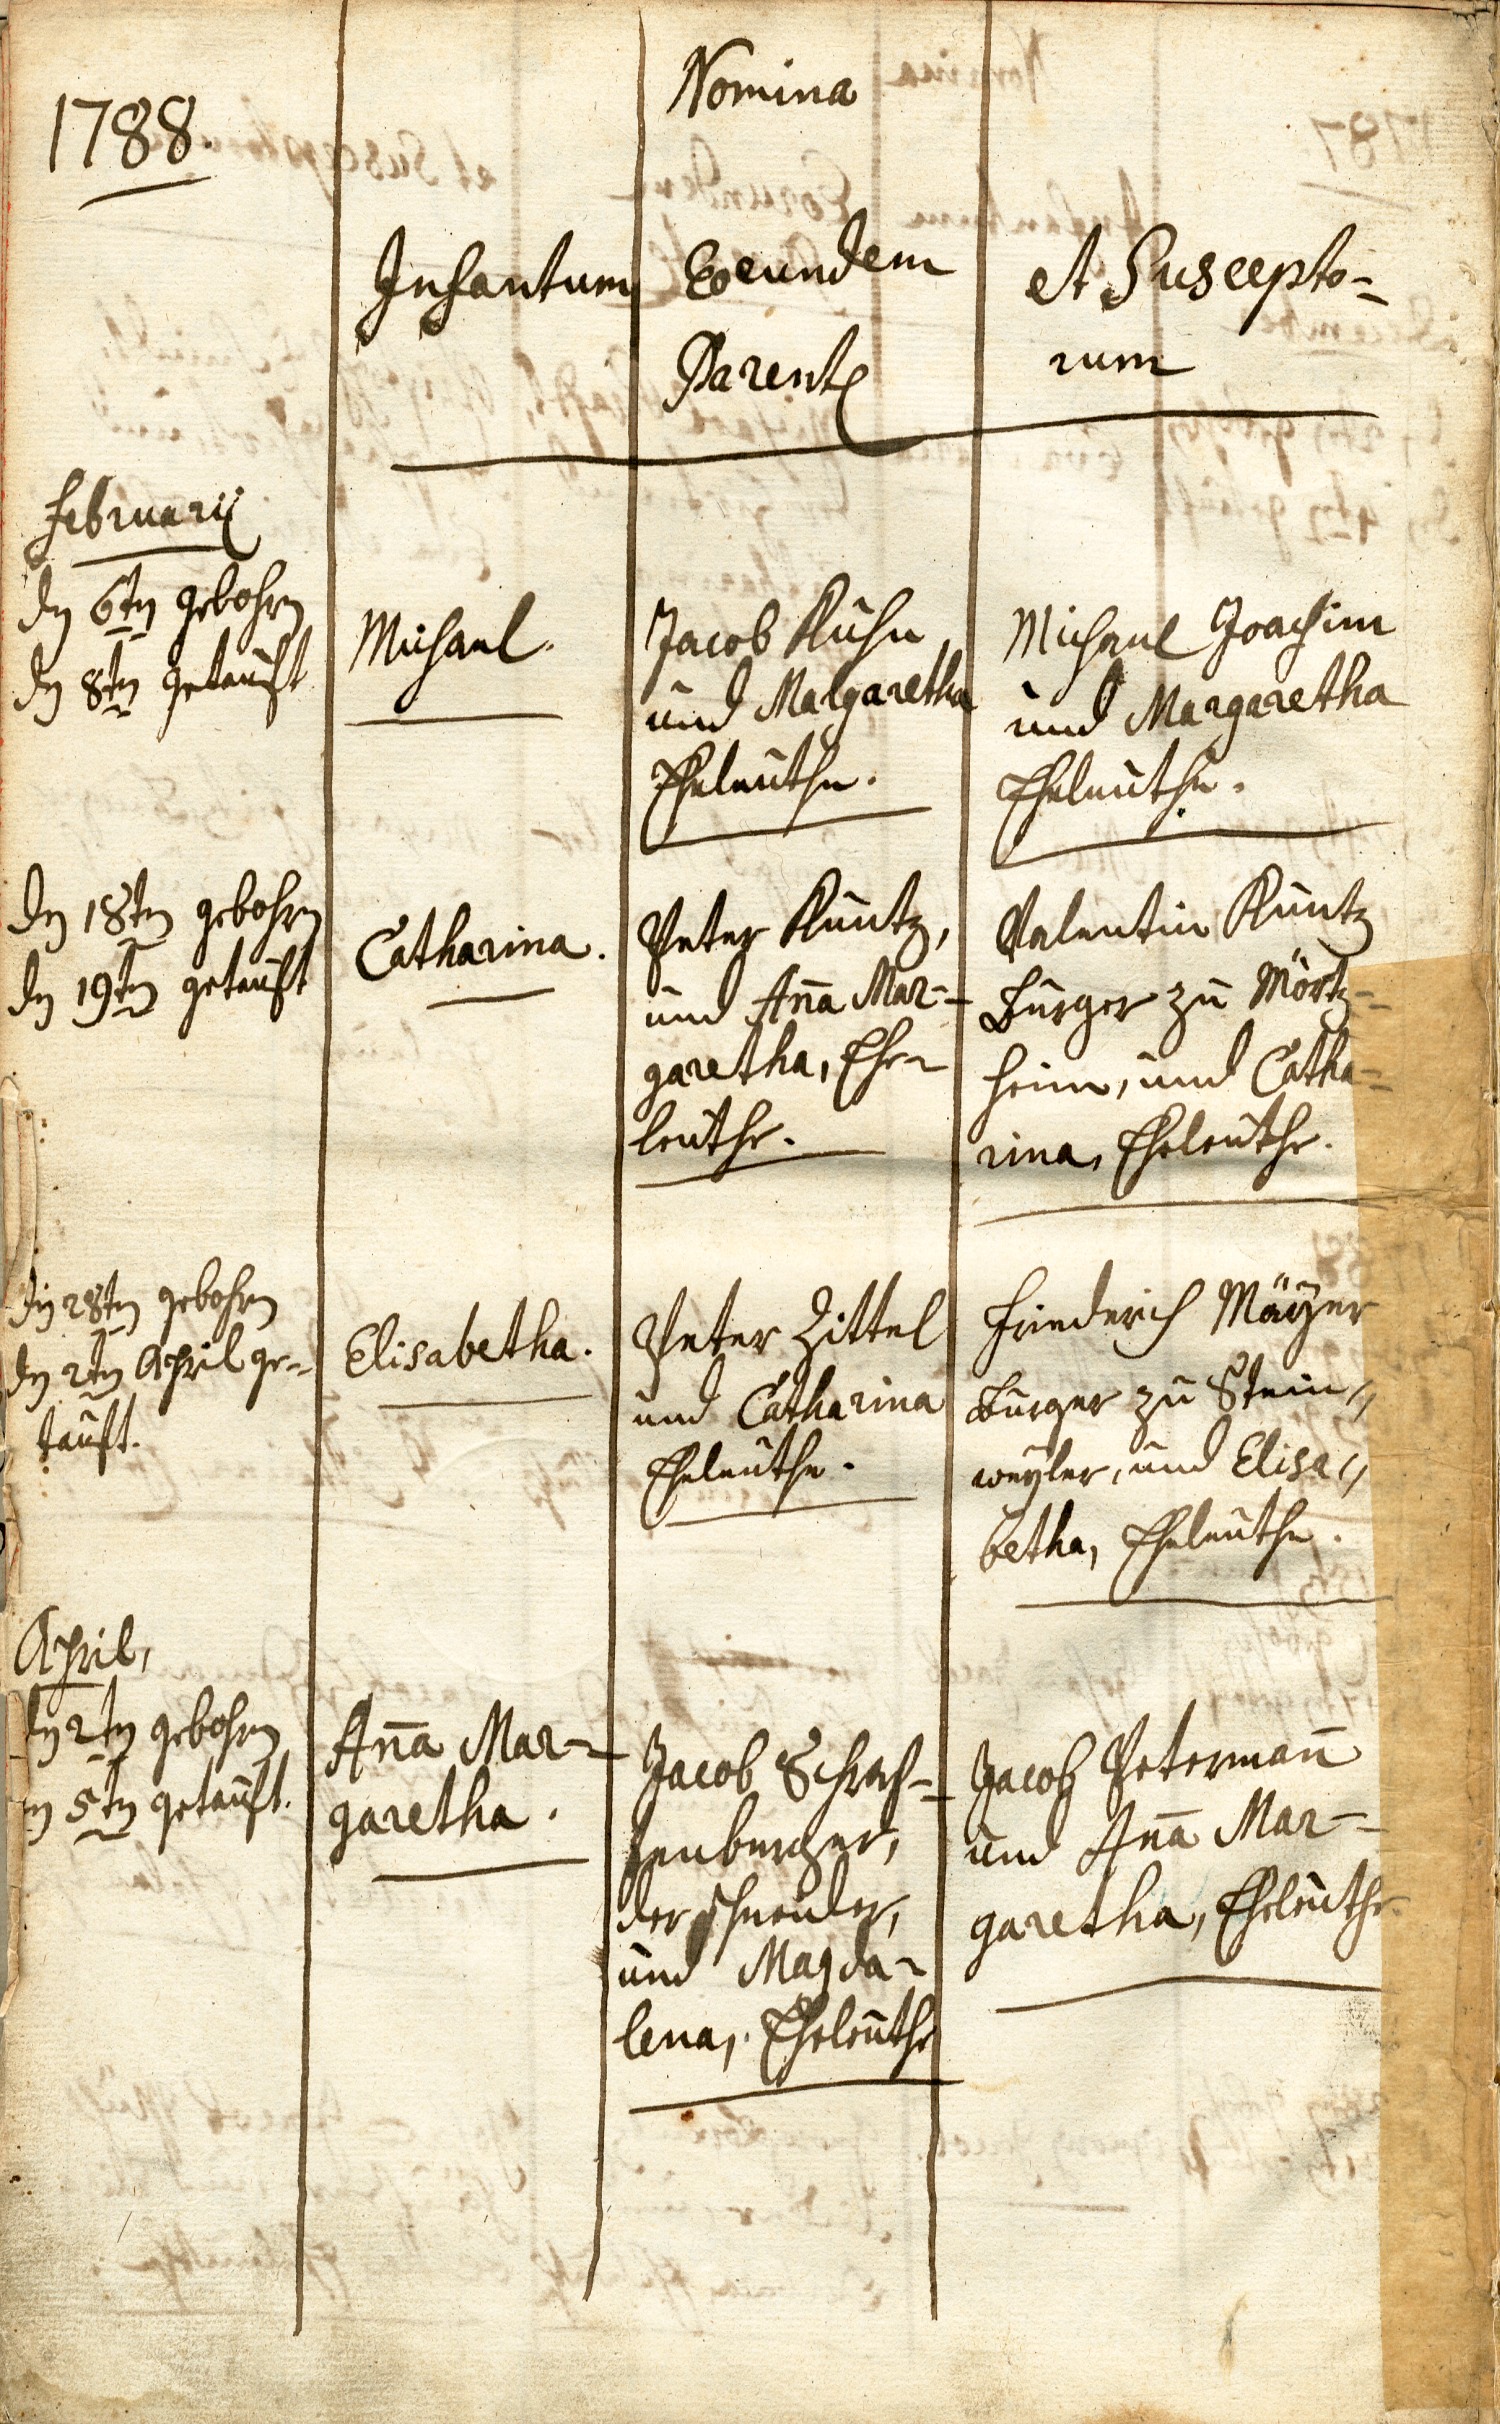 1788.
Nomina
Infantum
Eoeundem
Parent
et Suscepto=
rum
Februarii
dn 6tn gebohrn
dn 8tn getaüft
Michael.
Jacob Kuhn
und Margaretha
Eheleüthe.
Michael Joachim
und Margaretha
Eheleüthe.
dn 18tn gebohrn
dn 19tn getaüft
Catharina.
Peter Kuntz,
und Ana Mar=
garetha, Ehe=
leüthe.
Valentin Kuntz
Burger zu Mörtz=
heim, und Catha=
rina, Eheleüthe.
dn 28tn gebohrn
dn 2tn April ge=
taüft.
Elisabetha.
Peter Zittel
und Catharina
Eheleüthe.
Friederich Mäÿer
Burger zu Stein=
weyler, und Elisa=
betha, Eheleüthe.
April,
dn 2tn gebohrn
dn 5tn getaüft.
Ana Mar=
garetha.
Jacob
der Schneider,
und Magda=
lena, Eheleüthe
Jacob Peterman
und Ana Mar=
garetha, Eheleüthe.